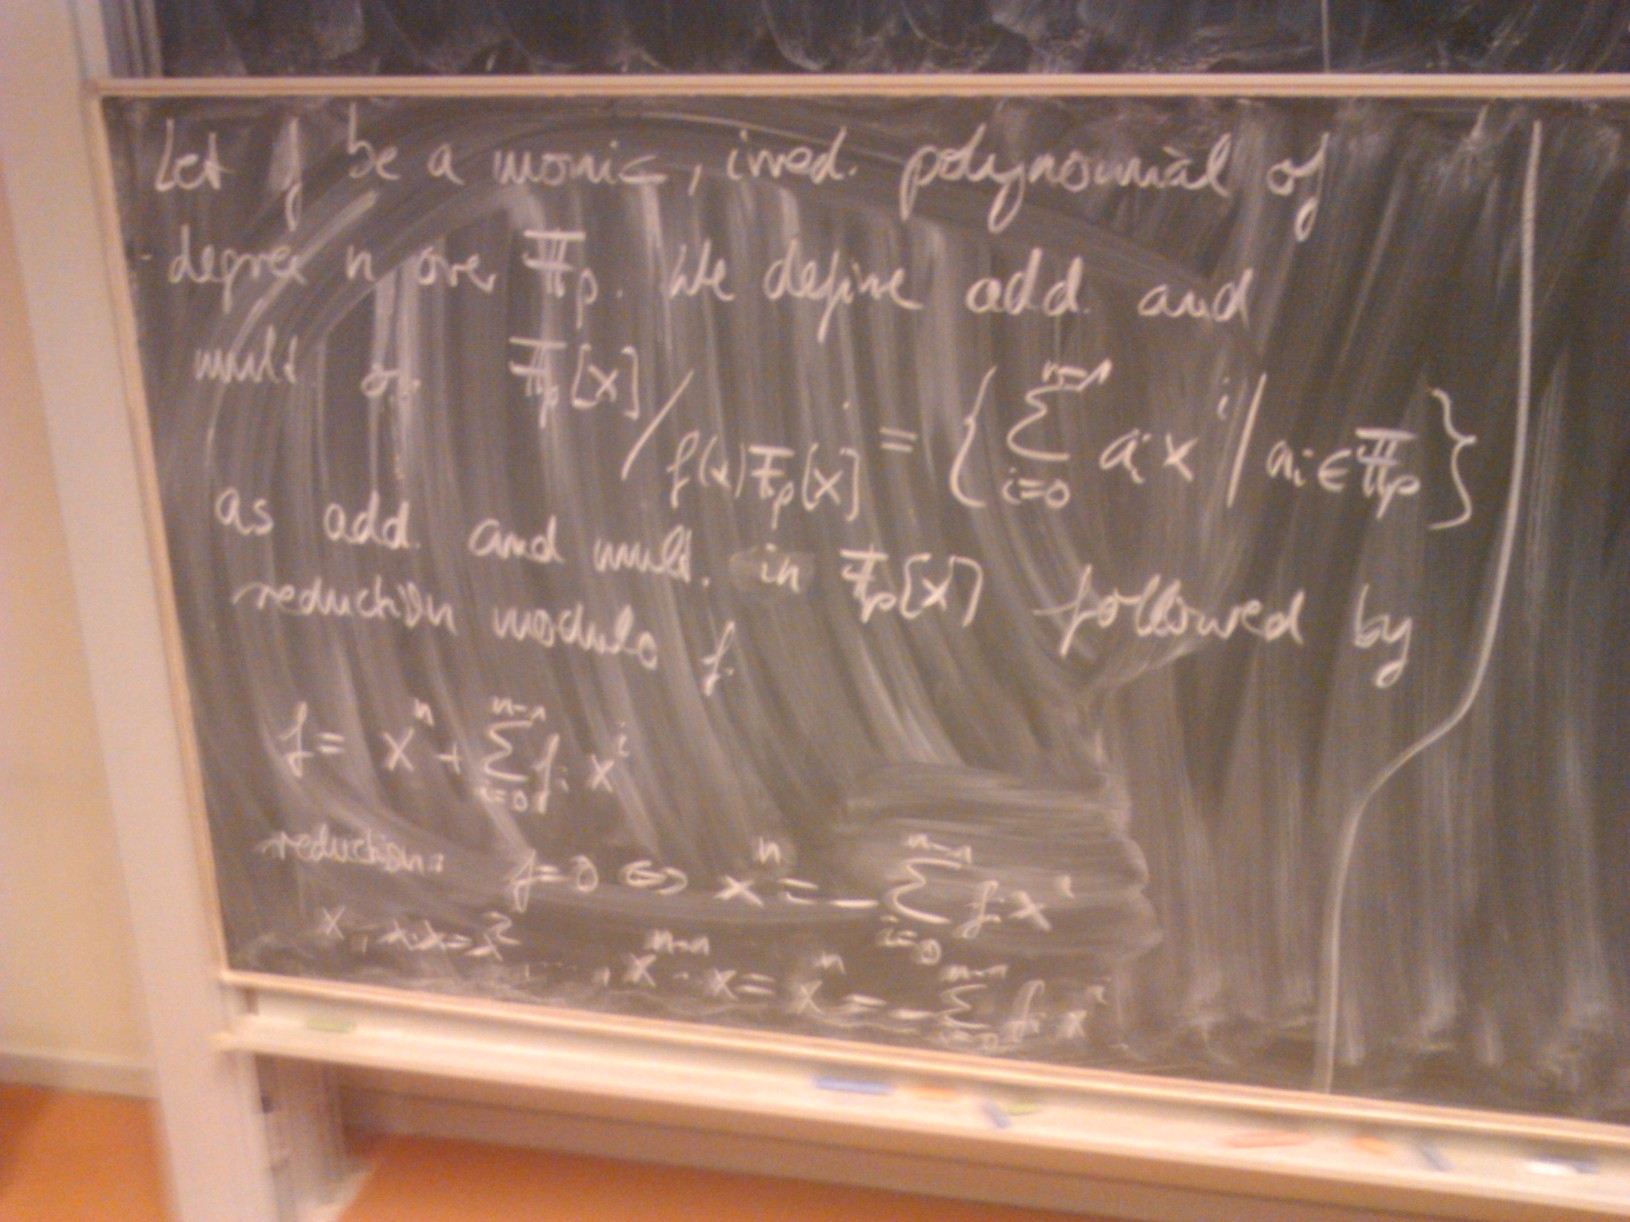 Let f be a monic, irred. polynomial of
degree n over 𝔽p. We define add. and
mult. on 𝔽p[x] / f(x)𝔽p[x] = { ∑_{i=0}^{n-1} aᵢ xⁱ | aᵢ ∈ 𝔽p }
as add. and mult. in 𝔽p[x] followed by
reduction modulo f.
f = xⁿ + ∑_{i=0}^{n-1} fᵢ xⁱ
reduction: f=0 ⇔ xⁿ = - ∑_{i=0}^{n-1} fᵢ xⁱ
x, x·x=x² ...., xⁿ⁻¹·x = xⁿ = - ∑_{i=0}^{n-1} fᵢ xⁱ